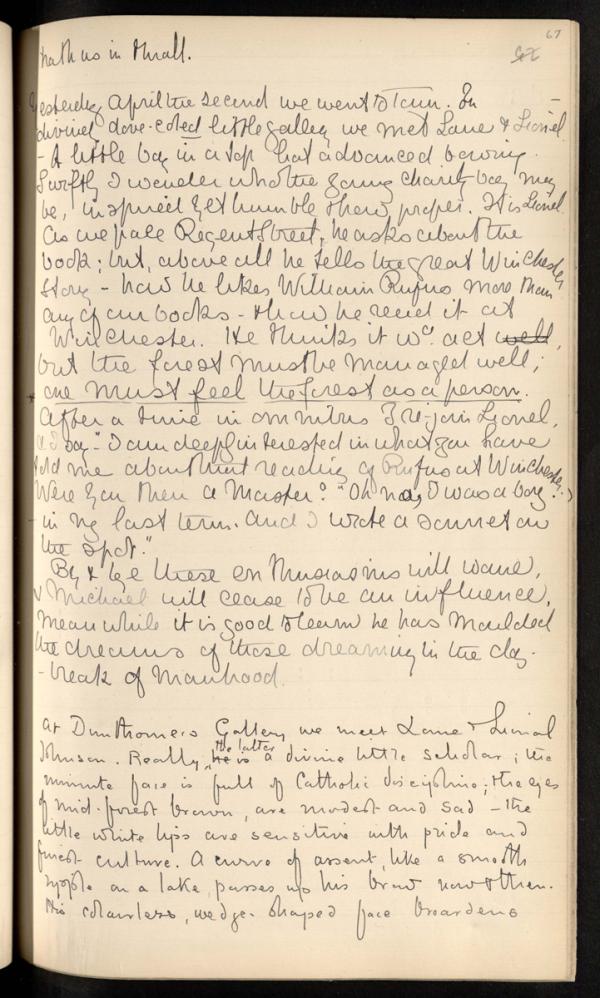 67
hath us in thrall.
Yesterday April the second we went to Town. In
divinely dove-coted little gallery we met Lane & Lionel
- A little boy in a top hat advanced bowing.
Swiftly I wonder who the young charity boy may
be, inspired yet humble & very proper. It is Lionel
As we pace Regent Street, he asks about the
book; but, above all he tells the great Winchester
story - how he likes William Rufus more than
any of our books - & how he read it at
Winchester. He thinks it wd. act well,
but the forest must be managed well;
one must feel the forest as a person.
After a time in omnibus I re-join Lionel,
& I say "I am deeply interested in what you have
told me about that reading of Rufus at Winchester.
Were you then a Master?" "Oh no, I was a boy
- in my last term. And I wrote a sonnet on
the spot."
By & bye these enthusiasms will wane,
& Michael will cease to be an influence,
meanwhile it is good to learn he has moulded
the dreams of those dreaming in the day-
-break of manhood.
At Dunthorne's Gallery we meet Lane & Lionel
Johnson. Really, he is the latter a divine little scholar; the
minute face is full of Catholic discipline; the eyes
of mid-forest brown, are modest and sad - the
little white lips are sensitive with pride and
finest culture. A curve of assent, like a smooth
ripple on a lake, passes up his brow now & then.
His colourless, wedge-shaped face broadens